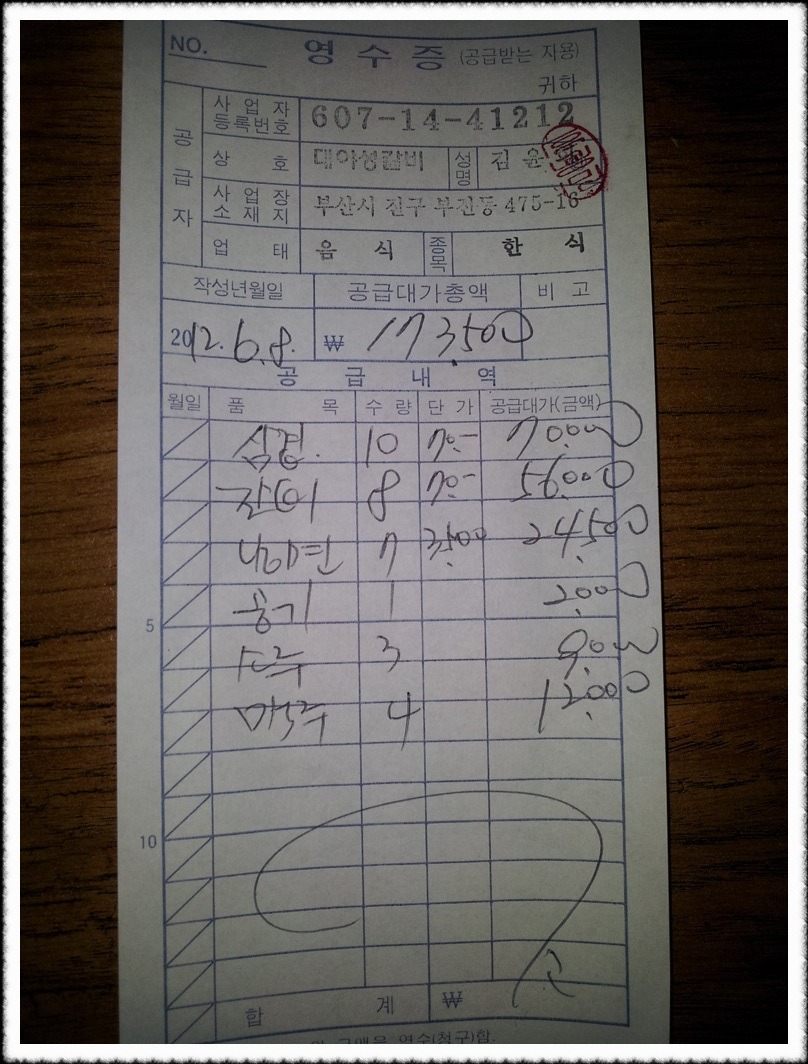 NO. 영 수 증 (공급받는 자용)
귀하
공급자
사업자등록번호 607-14-41212
상 호 대야성갈비 성명 김 윤
사업장소재지 부산시 진구 부전동 475-16
업 태 음 식 종목 한 식
작성년월일 공급대가총액 비 고
2012.6.8. ₩ 173,500
공 급 내 역
월일 품 목 수 량 단 가 공급대가(금액)
10 70.- 70.000
8 70.- 56.000
냉면 7 3,500 24,500
공기 1 2.000
5
소주 3 9.000
맥주 4 12.000
10
합 계 ₩
위 금액을 영수(청구)함.